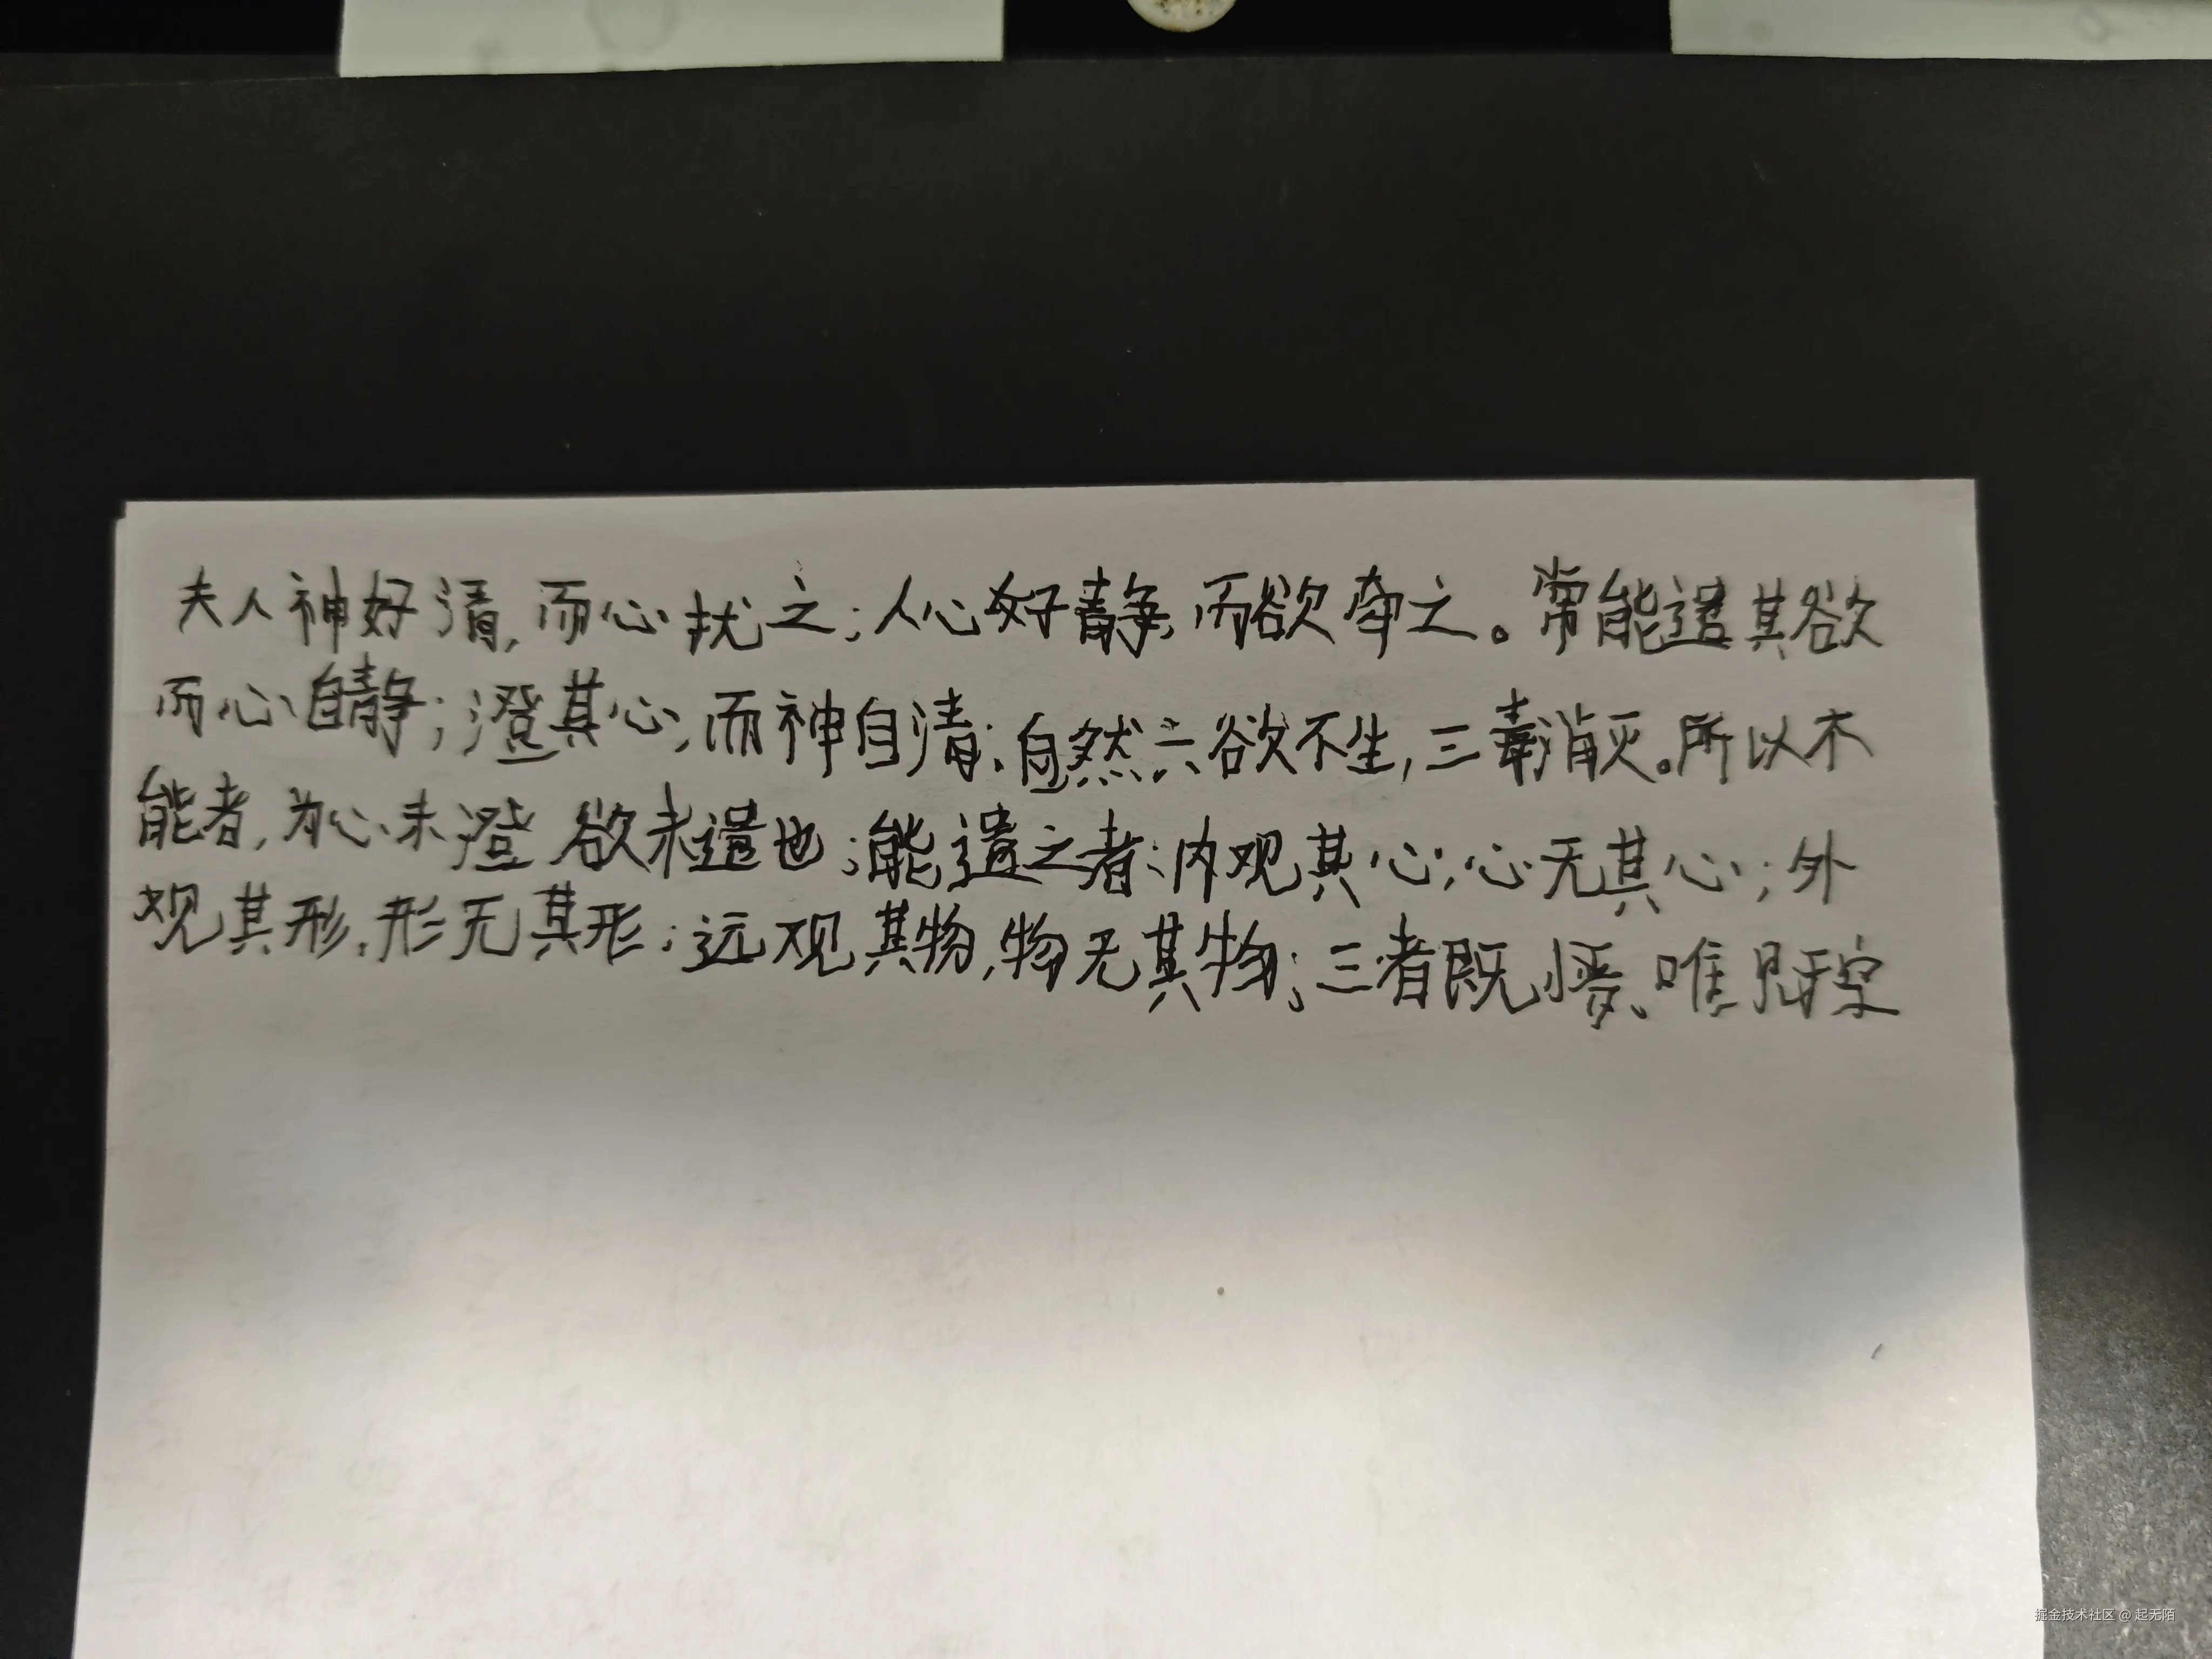 夫人神好清,而心扰之;人心好静,而欲牵之。常能遣其欲
而心自静;澄其心,而神自清;自然六欲不生,三毒消灭。所以不
能者,为心未澄 欲未遣也;能遣之者;内观其心;心无其心;外
观其形,形无其形;远观其物,物无其物;三者既悟、唯见于空
掘金技术社区 @ 起无陌